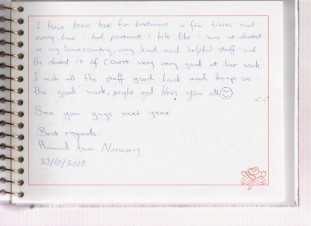 I have been her for treatment a few times and
every time i had treatment i felt like i was at dentist
in my home country, very kind and helpful staff and
the dentist is of course very very good at her work.
I wish all the staff good luck and keep on
the good work, might god bless you all
See you guys next year
Best regards:
Hamid from Norway
23/10/2010